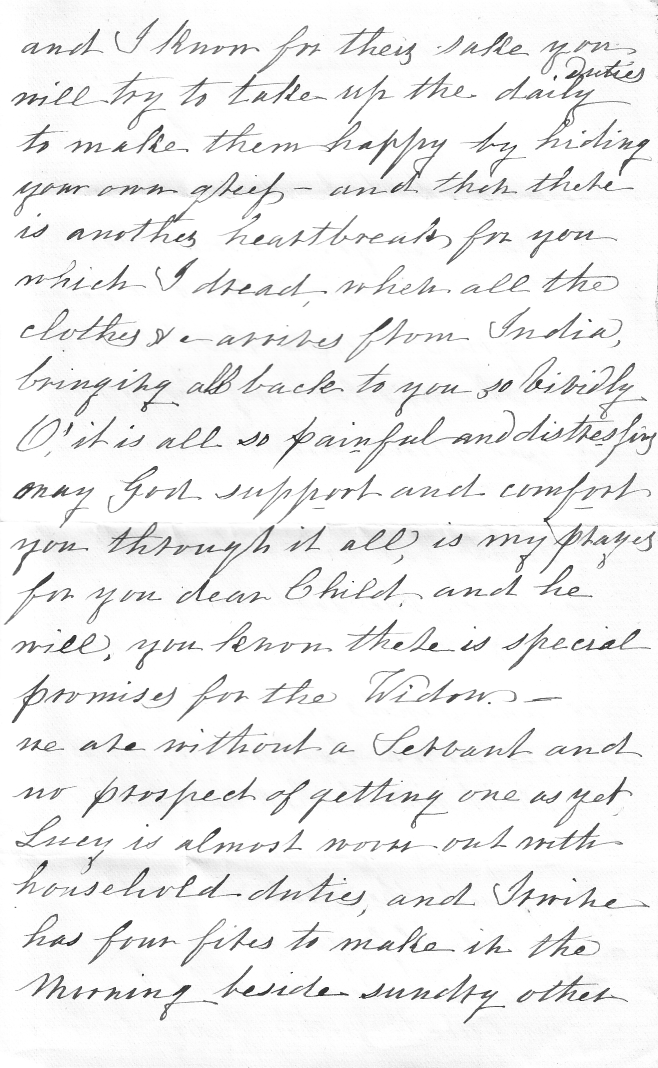 and I know for their sake you
will try to take up the daily duties
to make them happy by hiding
your own grief - and then there
is another heartbreak for you
which I dread, when all the
clothes &c arrives from India,
bringing all back to you so vividly
O! it is all so painful and distressing
may God support and comfort
you through it all, is my prayer
for you dear Child, and he
will, you know there is special
promises for the Widow. -
we are without a Servant and
no prospect of getting one as yet
Lucy is almost worn out with
household duties, and Irwine
has four fires to make in the
Morning beside sundry other